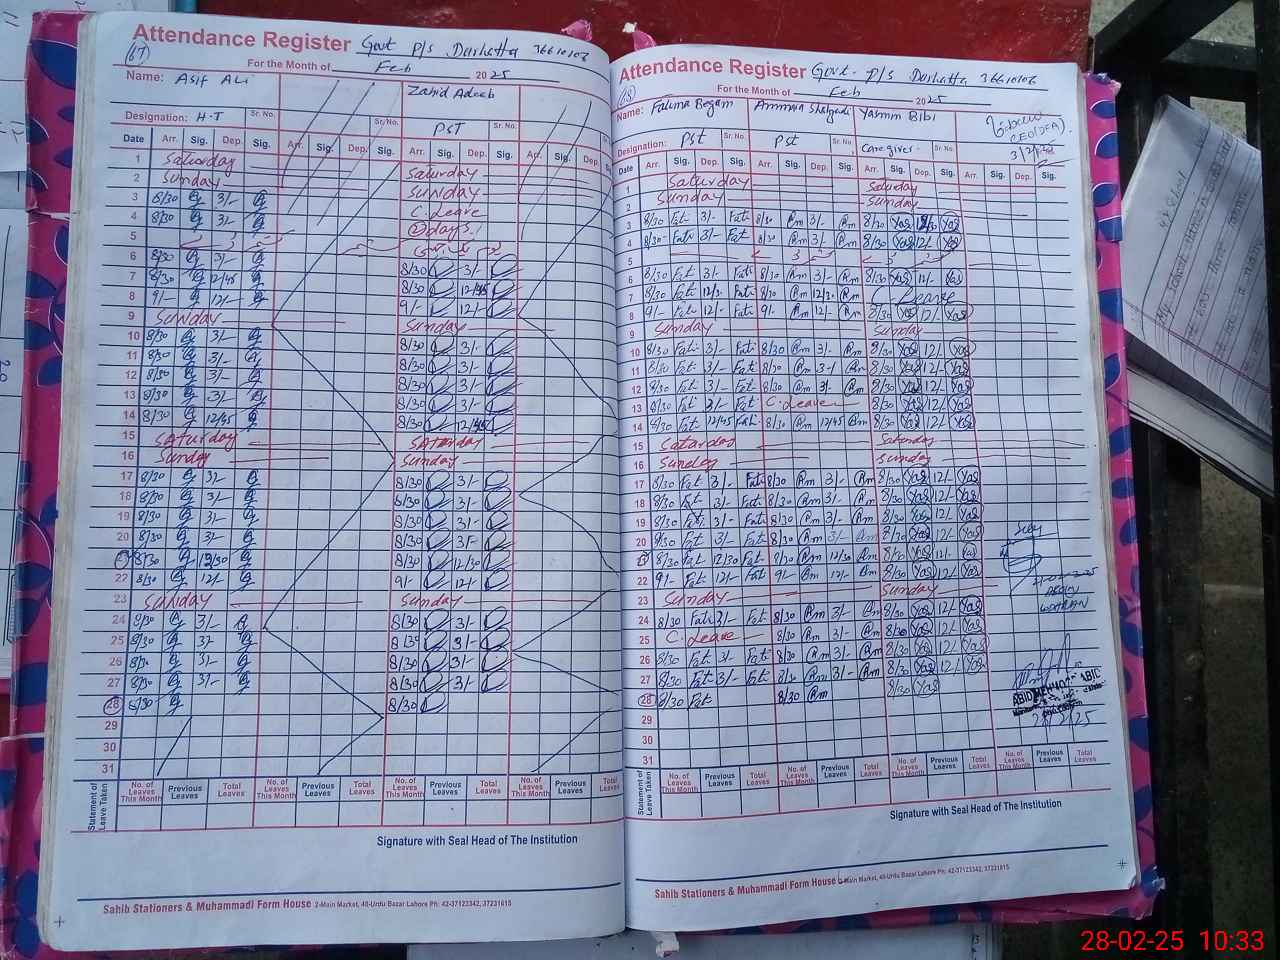 Attendance Register Govt P/S Durhatta 36610106
(67)
For the Month of Feb 2025
Name: Asif Ali
Zahid Adeeb
Designation: H.T Sr. No.
PST Sr. No.
Date Arr. Sig. Dep. Sig. Arr. Sig. Dep. Sig. Arr. Sig. Dep. Sig. Arr. Sig. Dep.
1 Saturday Saturday
2 Sunday Sunday
3 8/30 3/- C. Leave
4 8/30 3/- (2) days.
5
6 8/30 3/- 8/30 3/-
7 8/30 12/45 8/30 12/45
8 9/- 12/- 9/- 12/-
9 Sunday Sunday
10 8/30 3/- 8/30 3/-
11 8/30 3/- 8/30 3/-
12 8/30 3/- 8/30 3/-
13 8/30 3/- 8/30 3/-
14 8/30 12/45 8/30 12/45
15 Saturday Saturday
16 Sunday Sunday
17 8/30 3/- 8/30 3/-
18 8/30 3/- 8/30 3/-
19 8/30 3/- 8/30 3/-
20 8/30 3/- 8/30 3/-
21 8/30 12/30 8/30 12/30
22 8/30 12/- 9/- 12/-
23 Sunday Sunday
24 8/30 3/- 8/30 3/-
25 8/30 3/- 8/35 3/-
26 8/30 3/- 8/30 3/-
27 8/30 3/- 8/30 3/-
28 8/30 8/30
29
30
31
Statement of Leave Taken
No. of Leaves This Month Previous Leaves Total Leaves No. of Leaves This Month Previous Leaves Total Leaves No. of Leaves This Month Previous Leaves Total Leaves No. of Leaves This Month Previous Leaves Total Leaves
Signature with Seal Head of The Institution
Sahib Stationers & Muhammadi Form House 2-Main Market, 40-Urdu Bazar Lahore Ph: 42-37123342, 37231615
Attendance Register Govt. P/S Durhatta 36610106
(68)
For the Month of Feb 2025
Name: Fatima Begam Ammara Shahzadi Yasmin Bibi
Designation: Pst Sr. No. Pst Sr. No. Caregiver Sr. No.
3/2/25
Date Arr. Sig. Dep. Sig. Arr. Sig. Dep. Sig. Arr. Sig. Dep. Sig. Arr. Sig. Dep. Sig.
1 Saturday Saturday
2 Sunday Sunday
3 8/30 Fati 3/- Fati 8/30 Am 3/- Am 8/30 Yas Yas
4 8/30 Fati 3/- Fat 8/30 Am 3/- Am 8/30 Yas 12/- Yas
5
6 8/30 Fat 3/- Fati 8/30 Am 3/- Am 8/30 Yas 12/- Yas
7 8/30 Fat 12/30 Fat 8/30 Am 12/30 Am C. Leave
8 9/- Fat 12/- Fati 9/- Am 12/- Am 8/30 Yas 12/- Yas
9 Sunday Sunday
10 8/30 Fati 3/- Fati 8/30 Am 3/- Am 8/30 Yas 12/- Yas
11 8/30 Fat 3/- Fat 8/30 Am 3/- Am 8/30 Yas 12/- Yas
12 8/30 Fat 3/- Fat 8/30 Am 3/- Am 8/30 Yas 12/- Yas
13 8/30 Fat 3/- Fat C. Leave 8/30 Yas 12/- Yas
14 8/30 Fat 12/45 Fati 8/30 Am 12/45 Am 8/30 Yas 12/- Yas
15 Saturday Saturday
16 Sunday Sunday
17 8/30 Fat 3/- Fat 8/30 Am 3/- Am 8/30 Yas 12/- Yas
18 8/30 Fat 3/- Fati 8/30 Am 3/- Am 8/30 Yas 12/- Yas
19 8/30 Fat 3/- Fati 8/30 Am 3/- Am 8/30 Yas 12/- Yas
20 8/30 Fat 3/- Fat 8/30 Am 3/- Am 8/30 Yas 12/- Yas
21 8/30 Fat 12/30 Fat 8/30 Am 12/30 Am 8/30 Yas 12/-
22 9/- Fat 12/- Fat 9/- Am 12/- Am 8/30 Yas 12/- Yas
23 Sunday Sunday
24 8/30 Fati 3/- Fat 8/30 Am 3/- Am 8/30 Yas 12/- Yas
25 C. Leave 8/30 Am 3/- Am 8/30 Yas 12/- Yas
26 8/30 Fat 3/- Fat 8/30 Am 3/- Am 8/30 Yas 12/- Yas
27 8/30 Fat 3/- Fat 8/30 Am 3/- Am 8/30 Yas 12/- Yas
28 8/30 Fat 8/30 Am 8/30 Yas
28/2/25
29
30
31
Statement of Leave Taken
No. of Leaves This Month Previous Leaves Total Leaves No. of Leaves This Month Previous Leaves Total Leaves No. of Leaves This Month Previous Leaves Total Leaves No. of Leaves This Month Previous Leaves Total Leaves
Signature with Seal Head of The Institution
Sahib Stationers & Muhammadi Form House 2-Main Market, 40-Urdu Bazar Lahore Ph: 42-37123342, 37231615
28-02-25 10:33